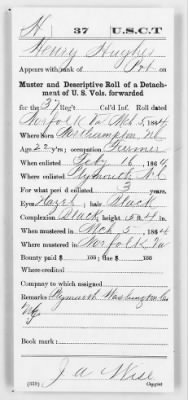 H 37 U.S.C.T
Henry Hughes
Appears with rank of Pvt on
Muster and Descriptive Roll of a Detach-
ment of U. S. Vols. forwarded
for the 37 Reg't Col'd Inf. Roll dated
Norfolk Va Mch 5, 1864
Where born Northampton, NC
Age 22 y'rs; occupation Farmer
When enlisted Feby 16, 1864
Where enlisted Plymouth N.C
For what period enlisted 3 years.
Eyes Hazel; hair Black
Complexion Black; height 5 ft. 4 in.
When mustered in Mch 5, 1864
Where mustered in Norfolk, Va
Bounty paid $ 100; due $ 100
Where credited
Company to which assigned
Remarks Plymouth Washington Co
NC
Book mark:
J A Wise
(339) Copyist